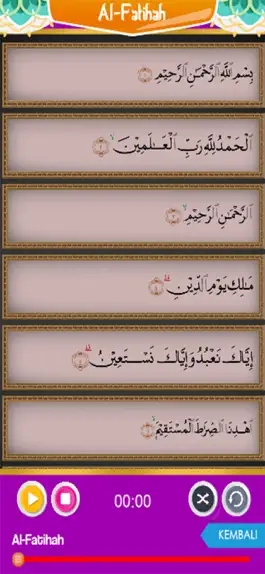 Al-Fatihah
بِسْمِ ٱللَّهِ ٱلرَّحْمَـٰنِ ٱلرَّحِيْمِ
اَلْحَمْدُ لِلَّهِ رَبِّ ٱلْعَـٰلَمِيْنَۙ
ٱلرَّحْمَـٰنِ ٱلرَّحِيْمِۙ
مَـٰلِكِ يَوْمِ ٱلدِّيْنِۗ
إِيَّاكَ نَعْبُدُ وَإِيَّاكَ نَسْتَعِيْنُۗ
اِهْدِنَا ٱلصِّرَٰطَ ٱلْمُسْتَقِيْمَۙ
00:00
KEMBALI
Al-Fatihah